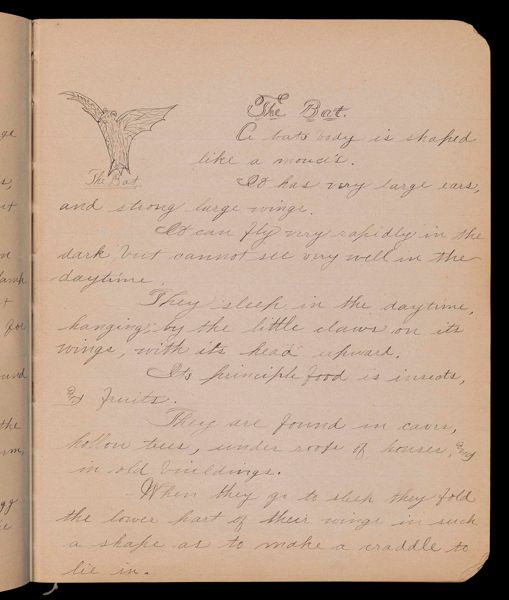 The Bat.
The Bat
A bats body is shaped
like a mous's.
It has very large ears,
and strong large wings.
It can fly very rapidly in the
dark but cannot see very well in the
daytime.
They sleep in the daytime,
hanging by the little claws on its
wings, with its head upward.
Its principle food is insects,
and fruits.
They are found in cavrs,
hollow trees, under roofs of houses, and
in old buildings.
When they go to sleep they fold
the lower part of their wings in such
a shape as to make a craddle to
lie in.